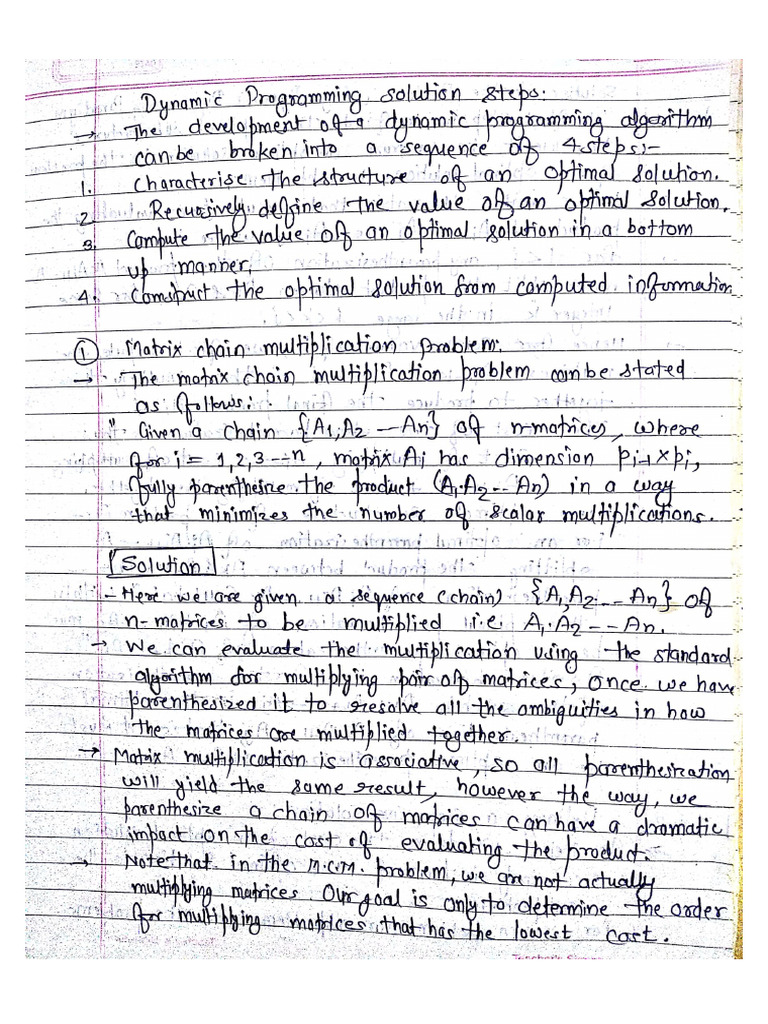 Dynamic Programming solution steps:
→ The development of a dynamic programming algorithm
can be broken into a sequence of 4 steps:-
1. Characterise the structure of an optimal solution.
2. Recursively define the value of an optimal solution.
3. Compute the value of an optimal solution in a bottom
up manner.
4. Construct the optimal solution from computed information
① Matrix chain multiplication problem:
→ The matrix chain multiplication problem can be stated
as follows:
" Given a chain {A1, A2 --- An} of n-matrices, where
for i = 1,2,3 --- n, matrix Ai has dimension pi-1 x pi,
fully parenthesize the product (A1.A2 --- An) in a way
that minimizes the number of scalar multiplications.
"Solution
- Here we are given a sequence (chain) {A1, A2 --- An} of
n-matrices to be multiplied i.e A1.A2 --- An.
→ We can evaluate the multiplication using the standard
algorithm for multiplying pair of matrices, once we have
parenthesized it to resolve all the ambiguities in how
the matrices are multiplied together.
→ Matrix multiplication is associative, so all parenthesization
will yield the same result, however the way, we
parenthesize a chain of matrices can have a dramatic
impact on the cost of evaluating the product.
→ Note that in the M.C.M. problem, we are not actually
multiplying matrices. Our goal is only to determine the order
for multiplying matrices that has the lowest cost.